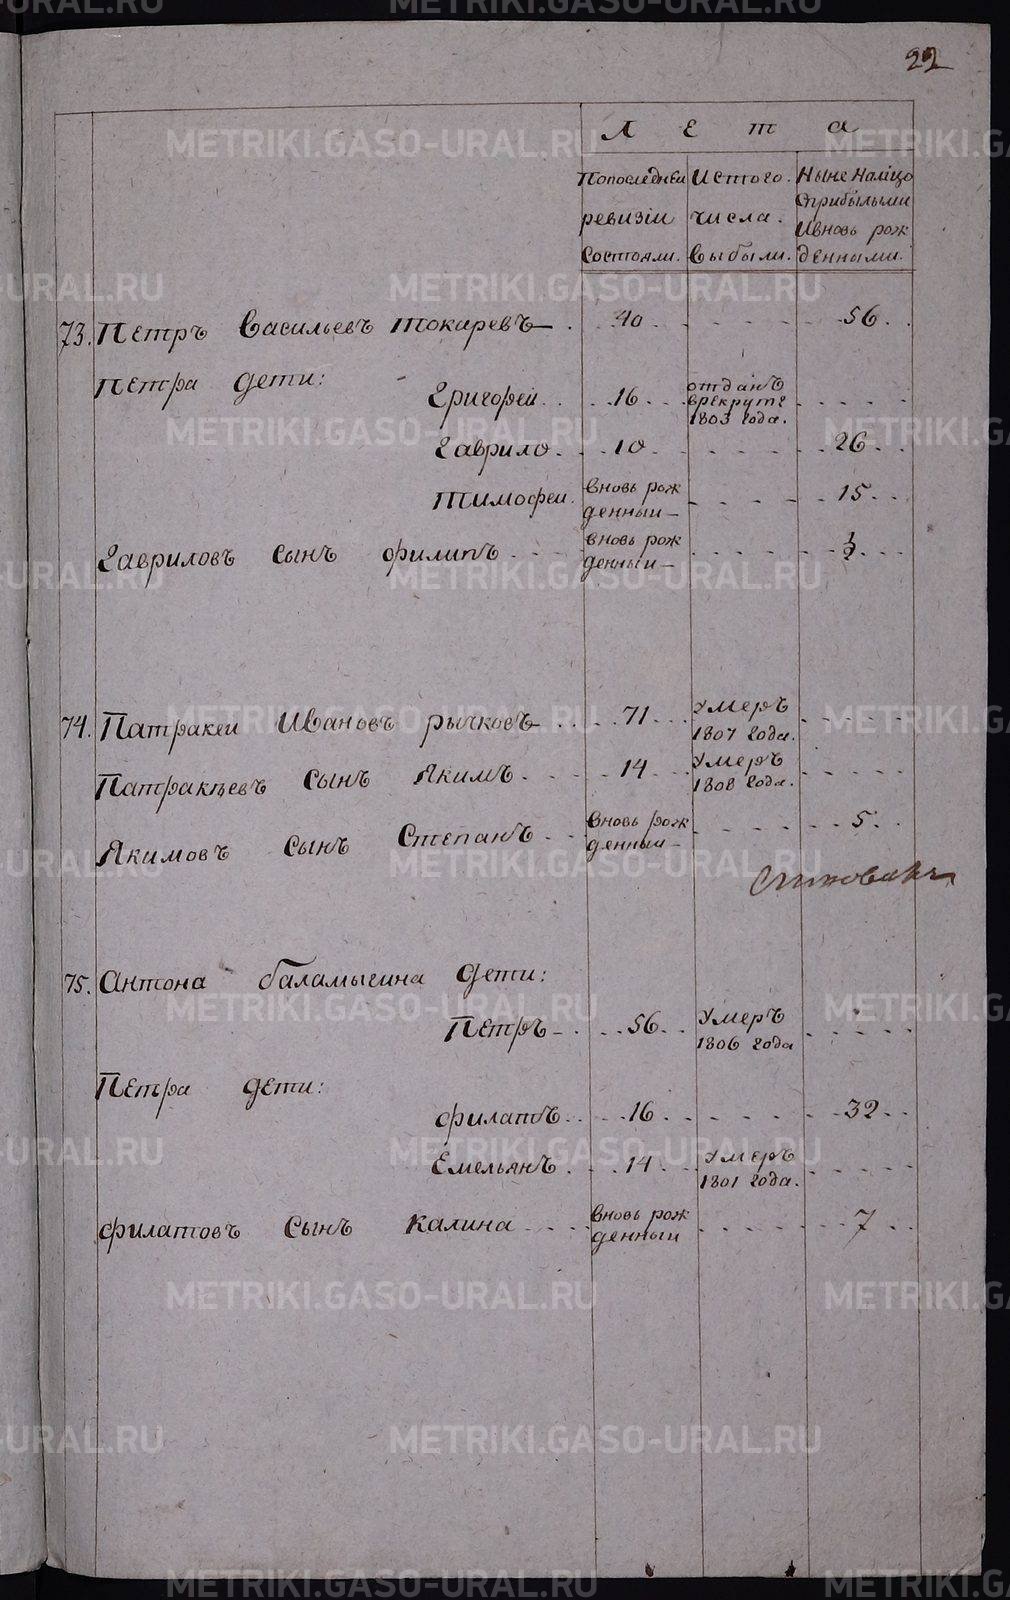 22
Лета
Попоследней ревизiи состояли.
Истого числа выбыли.
Ныне налiцо сприбылыми ивновь рожденными.
73. Петръ Васильевъ токаревъ 40 56
Петра дети:
Григорей 16 отданъ врекруте 1803 года.
Гаврило 10 26
Тимофеи вновь рожденныи 15
Гавриловъ сынъ филипъ вновь рожденныи
74. Патракеи Ивановъ рычковъ 71 умеръ 1807 года.
Патракѣевъ сынъ Якимъ 14 умеръ 1808 года.
Якимовъ сынъ Степанъ вновь рожденныи 5
75. Антона баламыгина дети:
Петръ 56 умеръ 1806 года
Петра дети:
филатъ 16 32
Емельянъ 14 умеръ 1801 года.
филатовъ сынъ калина вновь рожденныи 7
METRIKI.GASO-URAL.RU